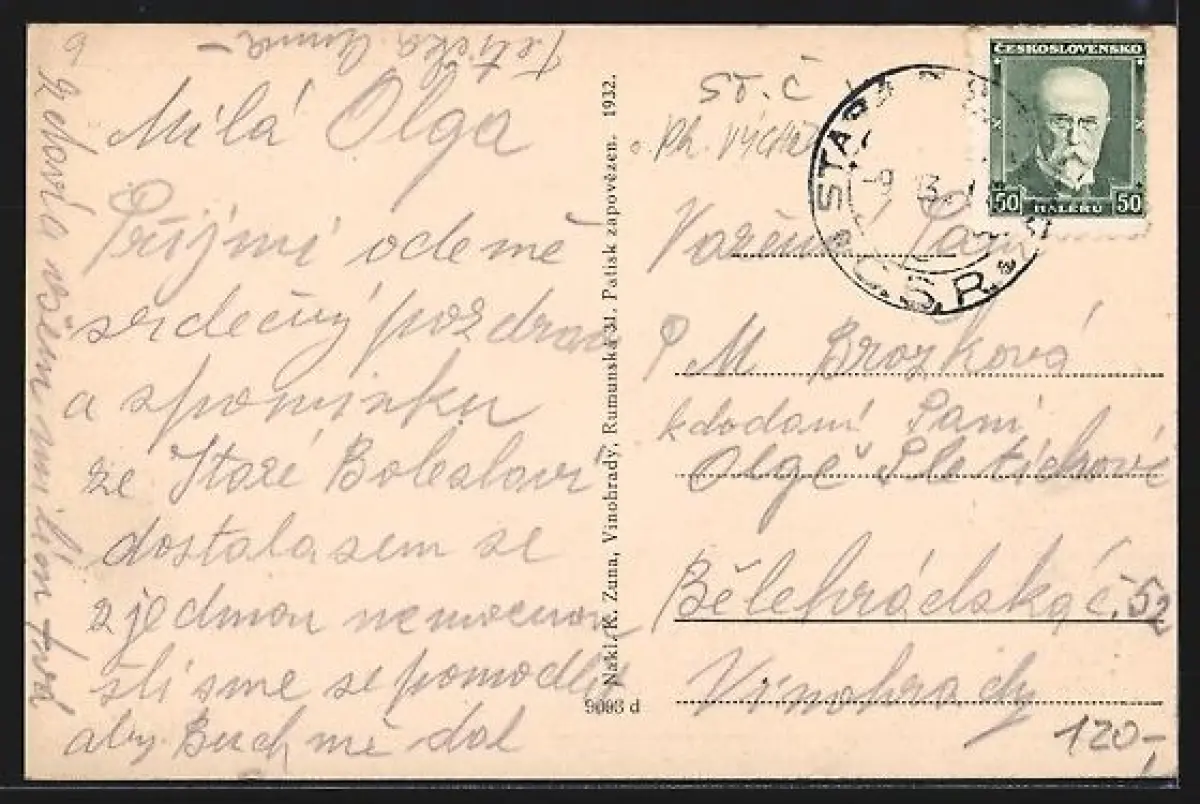 Milá Olga
Přijmi odemě
srdečný pozdrav
a spominku
ze Staré Boleslavi
dostala sem se
z jednou nemocnou
šli sme se pomodlit
aby Buch mě dal
Tetička Anna
Nakl. K. Zuna, Vinohrady, Rumunská 31. Patisk zapovězen. 1932.
9093 d
ST. Č
ČESKOSLOVENSKO
50 HALÉŘŮ 50
STARÁ
Č.S.R.
Vážená Paní
P M Brozková
k dodaní Paní
Olgě
Bělehrádská č. 52
Vinohrady
120,-